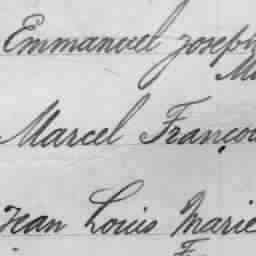 Emmanuel Joseph
M
Marcel Françoi
Jean Louis Marie
F